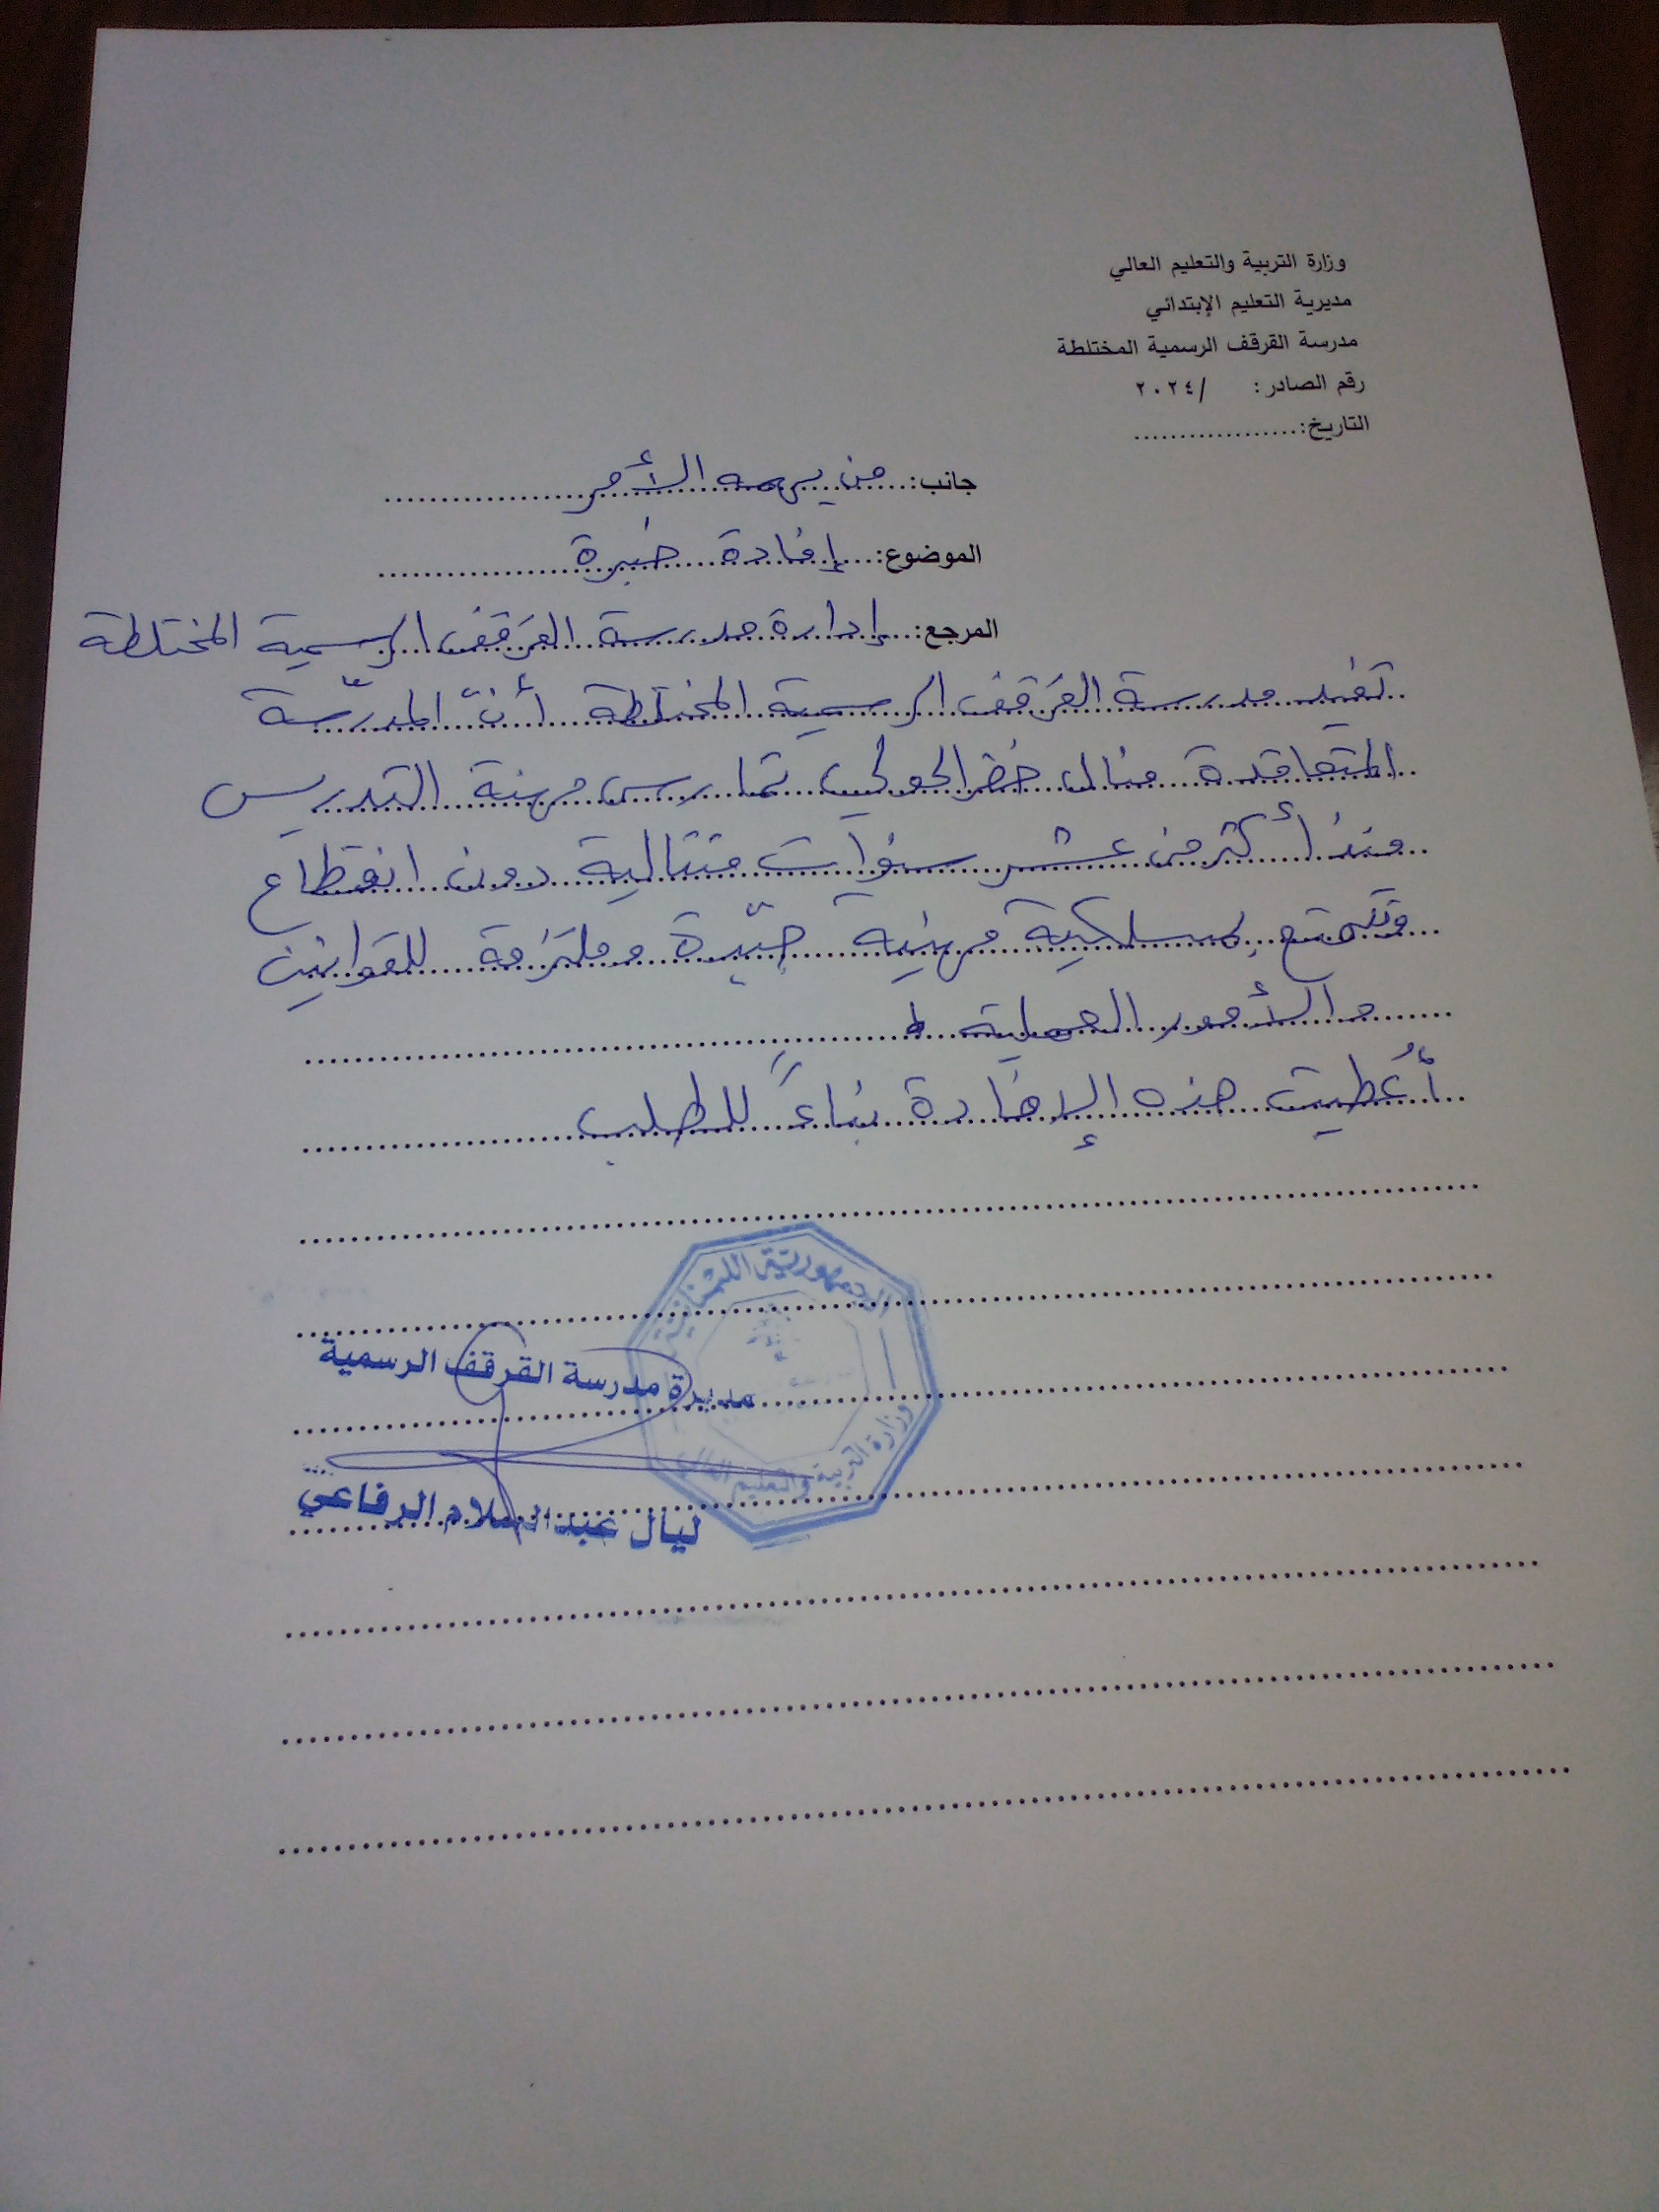 وزارة التربية والتعليم العالي
مديرية التعليم الإبتدائي
مدرسة القرقف الرسمية المختلطة
رقم الصادر: /٢٠٢٤
التاريخ:..................
جانب: من يهمه الأمر
الموضوع: إفادة خبرة
المرجع: إدارة مدرسة القرقف الرسمية المختلطة
تفيد مدرسة القرقف الرسمية المختلطة أنّ المدرّسة
المتعاقدة منال خضر الحولي تمارس مهنة التدريس
منذ أكثر من عشر سنوات متتالية دون انقطاع
وتتمتع بمسلكية مهنية جيّدة وملتزمة للقوانين
والأمور العملية
أُعطيت هذه الإفادة بناءً للطلب
الجمهورية اللبنانية
مديرة مدرسة القرقف الرسمية
وزارة التربية والتعليم العالي
ليال عبد السلام الرفاعي